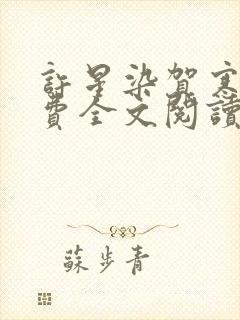 許星染賀寒
費全文閱讀
蘇步青